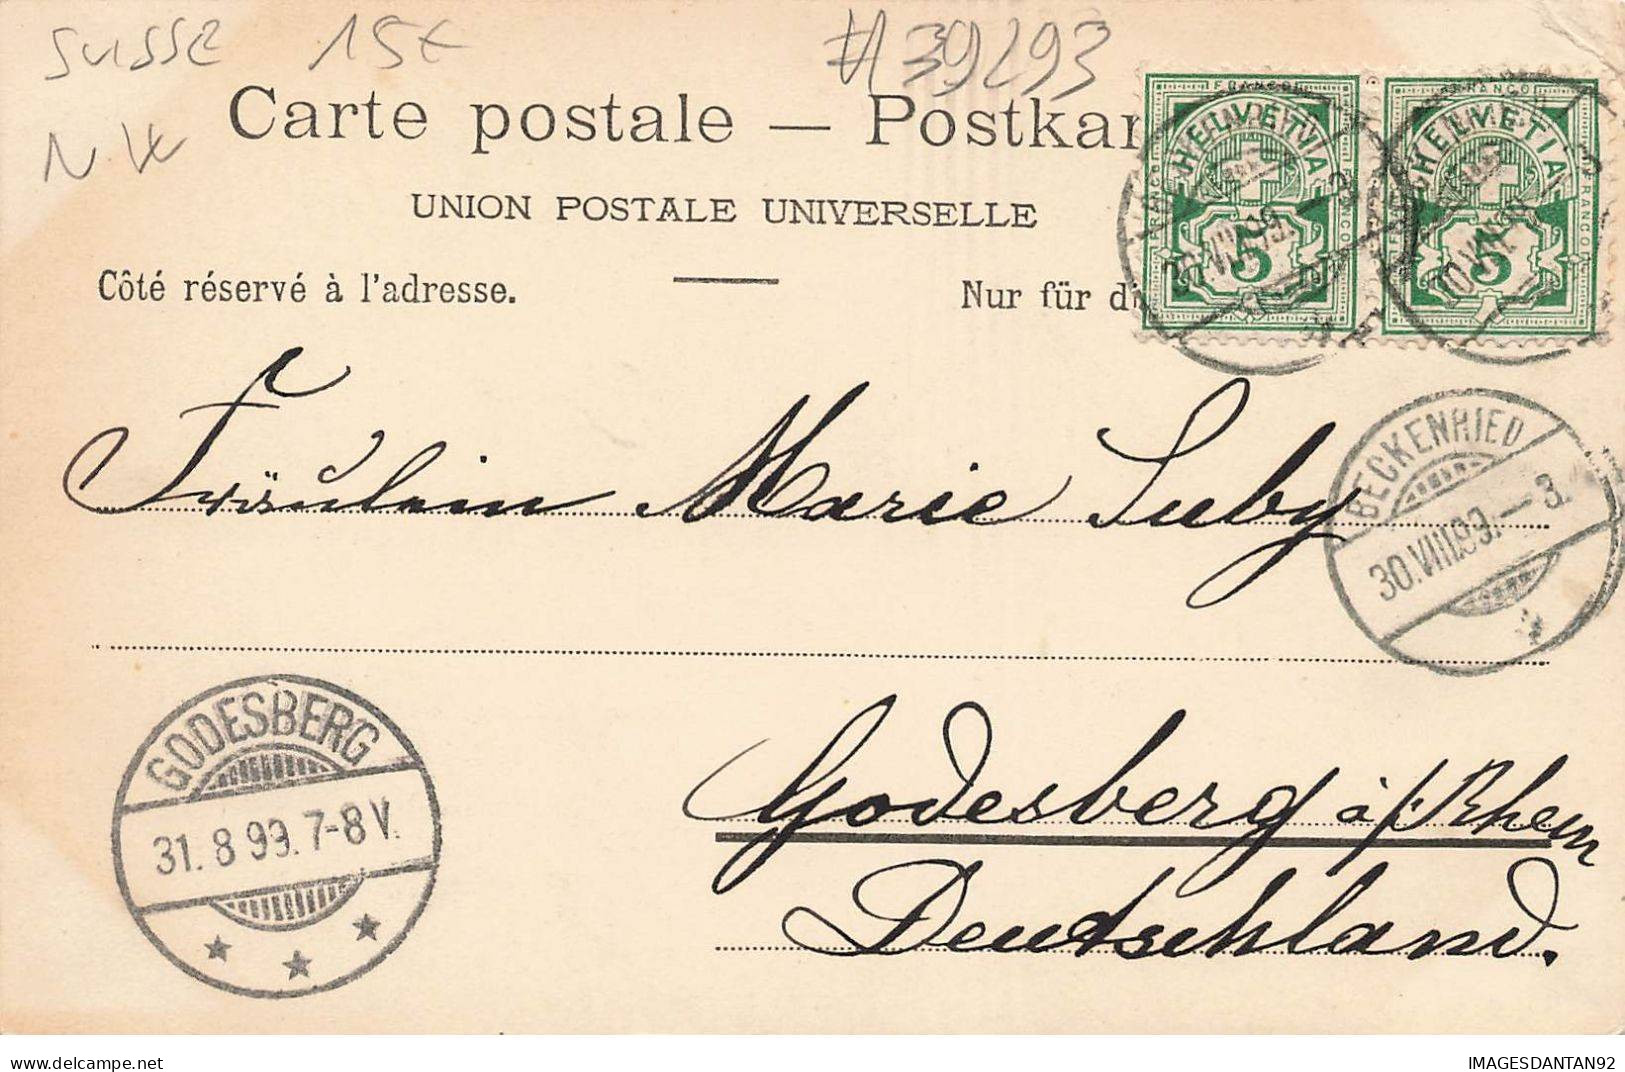 SUSSE 15€ #39293
NW
Carte postale — Postkar
UNION POSTALE UNIVERSELLE
Côté réservé à l'adresse.
Nur für di
FRANCO
HELVETIA
5
FRANCO
HELVETIA
5
BECKENRIED
30.VIII.99.–3.
Fräulein Marie Suby
GODESBERG
31.8 99. 7-8 V.
Godesberg a/. Rhein
Deutschland.
delcampe.net
IMAGESDANTAN92